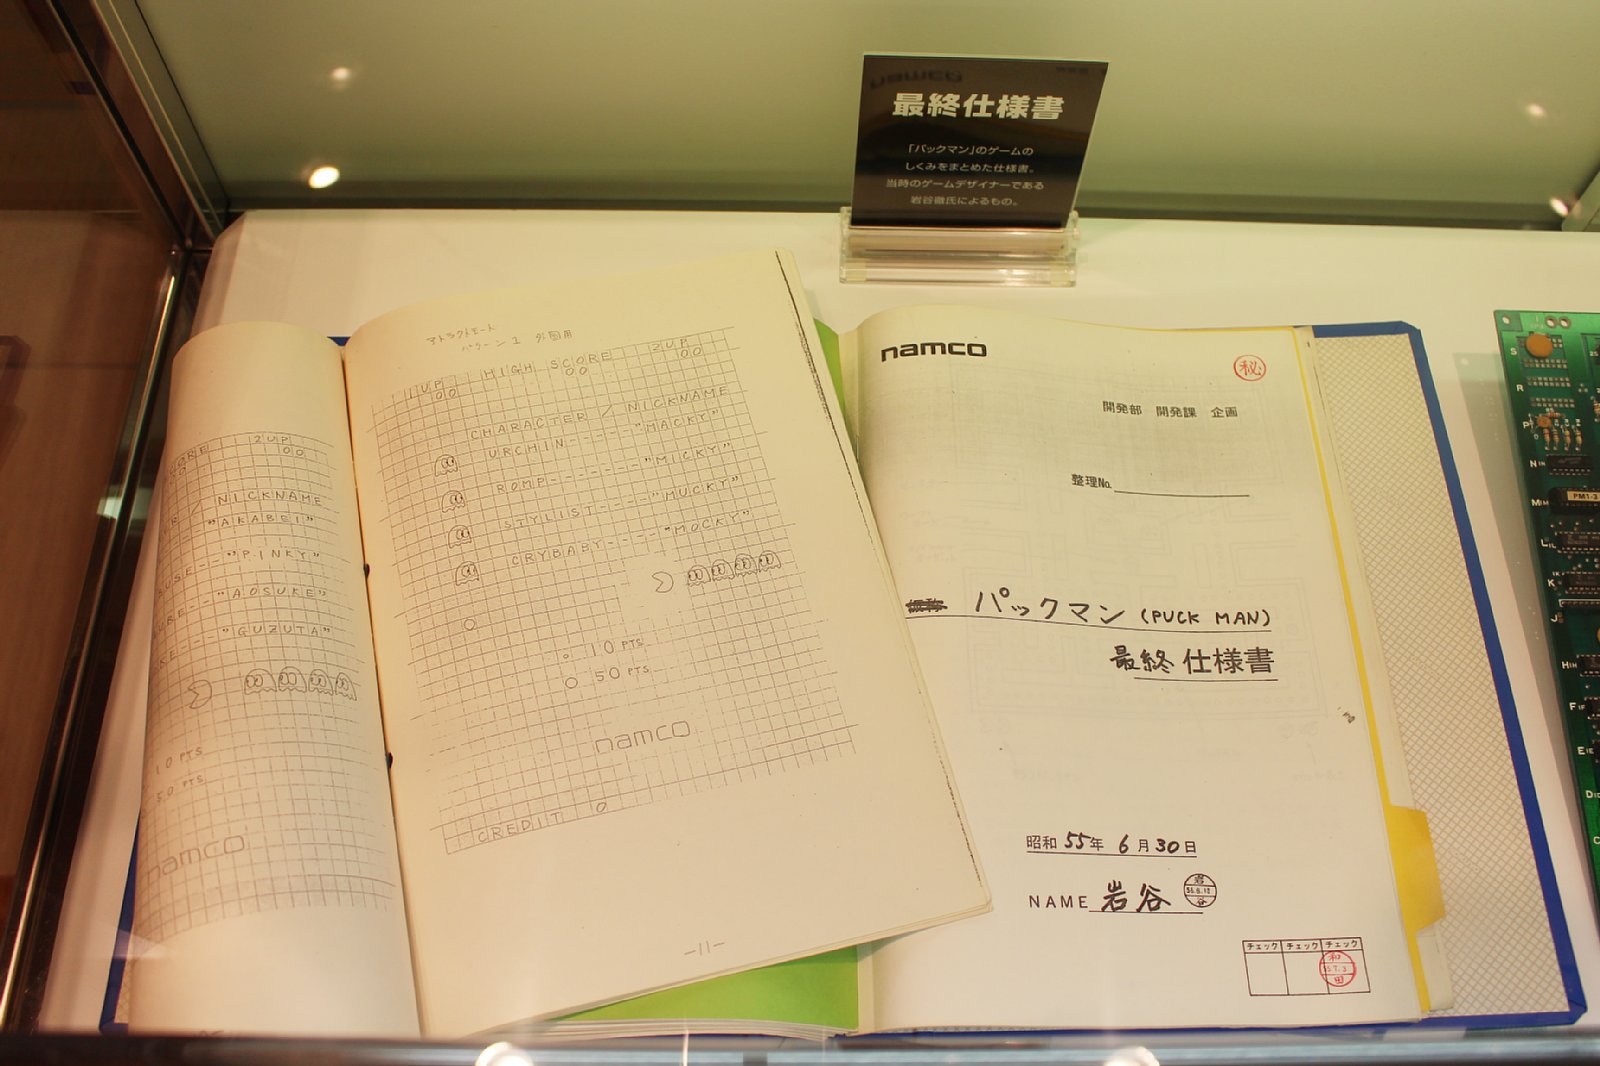 namco
最終仕様書
「パックマン」のゲームの
しくみをまとめた仕様書。
当時のゲームデザイナーである
岩谷徹氏によるもの。
ORE 2UP
00
NICKNAME
"AKABEI"
"PINKY"
"AOSUKE"
"GUZUTA"
10 PTS
50 PTS
namco
アトラクトモード
パターン1 外国用
1UP HIGH SCORE 2UP
00 00 00
CHARACTER / NICKNAME
URCHIN-----"MACKY"
ROMP------"MICKY"
STYLIST-----"MUCKY"
CRYBABY----"MOCKY"
10 PTS
50 PTS
namco
CREDIT 0
-11-
namco
秘
開発部 開発課 企画
整理No.
パックマン (PUCK MAN)
最終仕様書
昭和55年6月30日
NAME 岩谷
岩
谷
チェック チェック チェック
和
田
S
R
P
N
M
PM1-3
L
K
J
H
F
E
D